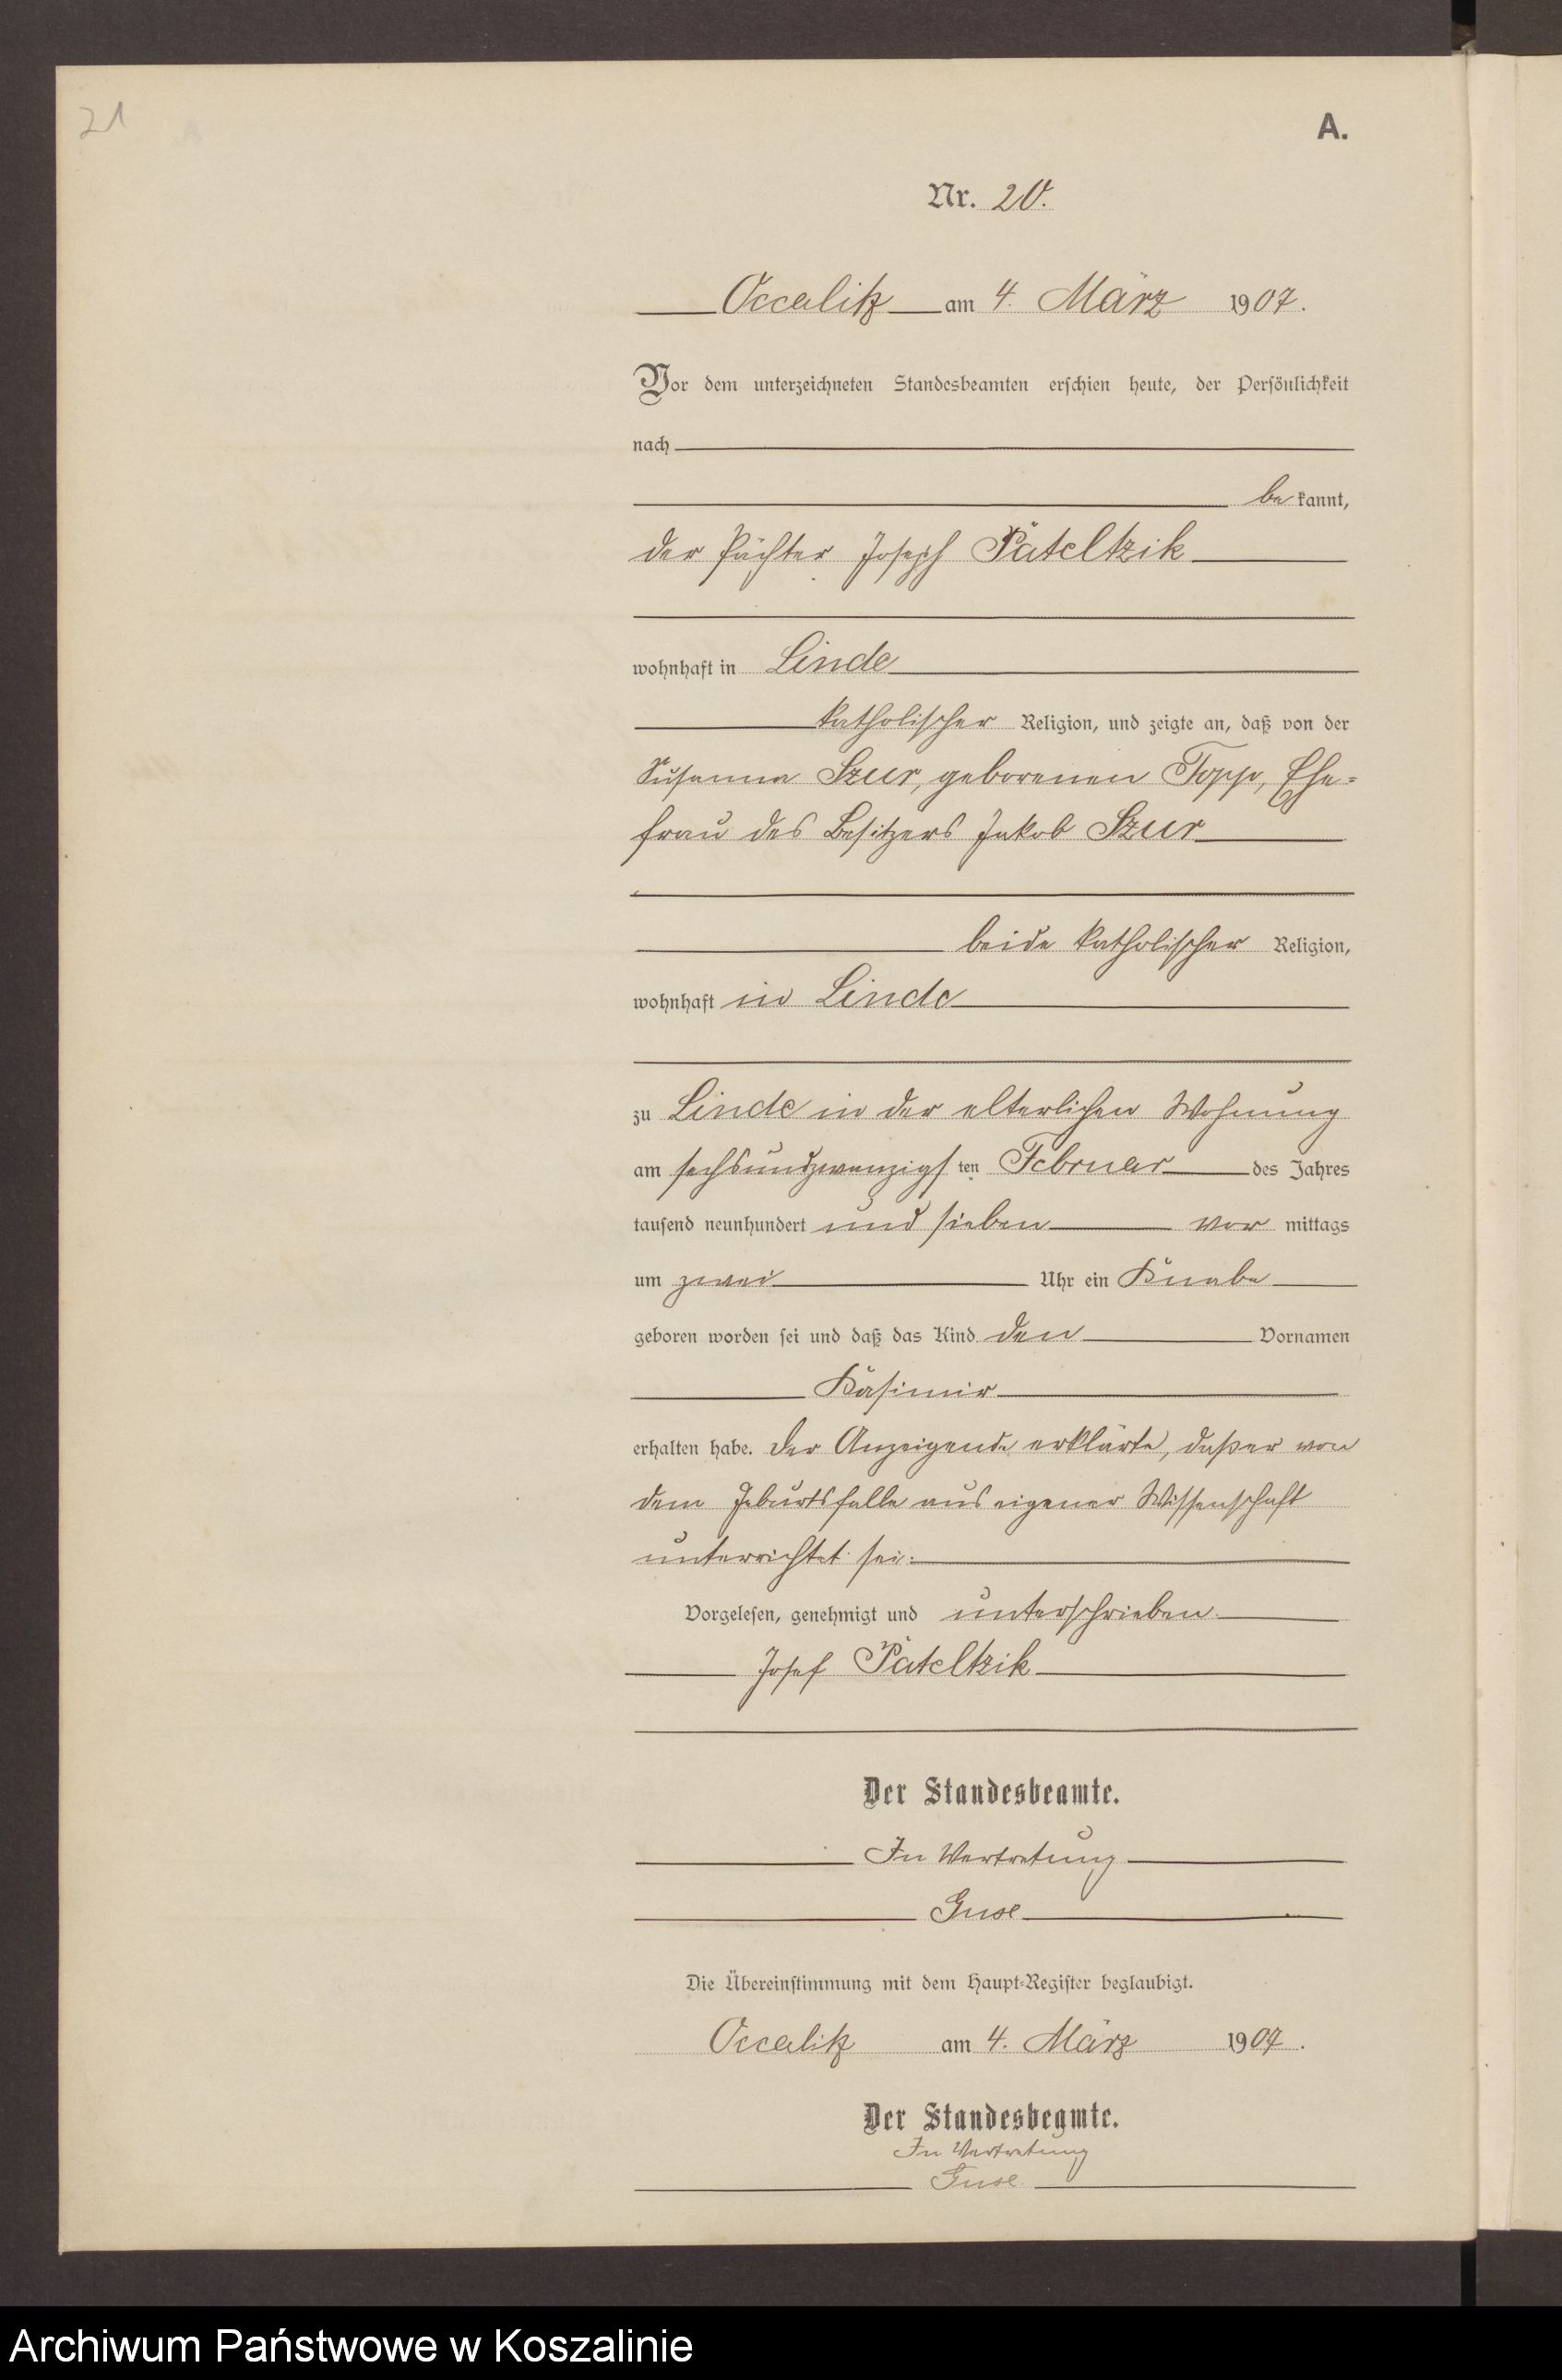 21
A.
Nr. 20.
Occalitz am 4. März 1907.
Vor dem unterzeichneten Standesbeamten erschien heute, der Persönlichkeit
nach
be kannt,
der Pächter Joseph Pateltzik
wohnhaft in Linde
katholischer Religion, und zeigte an, daß von der
Susanna Szur, geborenen Topp, Ehe=
frau des Besitzers Jakob Szur
beide katholischer Religion,
wohnhaft in Linde
zu Linde in der elterlichen Wohnung
am sechsundzwanzigsten Februar des Jahres
tausend neunhundert und sieben vor mittags
um zwei Uhr ein Knabe
geboren worden sei und daß das Kind den Vornamen
Kasimir
erhalten habe. Der Anzeigende erklärte, daß er von
dem Geburtsfalle aus eigener Wissenschaft
unterrichtet sei.
Vorgelesen, genehmigt und unterschrieben.
Josef Pateltzik
Der Standesbeamte.
In Vertretung
Guse
Die Übereinstimmung mit dem Haupt-Register beglaubigt.
Occalitz am 4. März 1907.
Der Standesbeamte.
In Vertretung
Guse
Archiwum Państwowe w Koszalinie